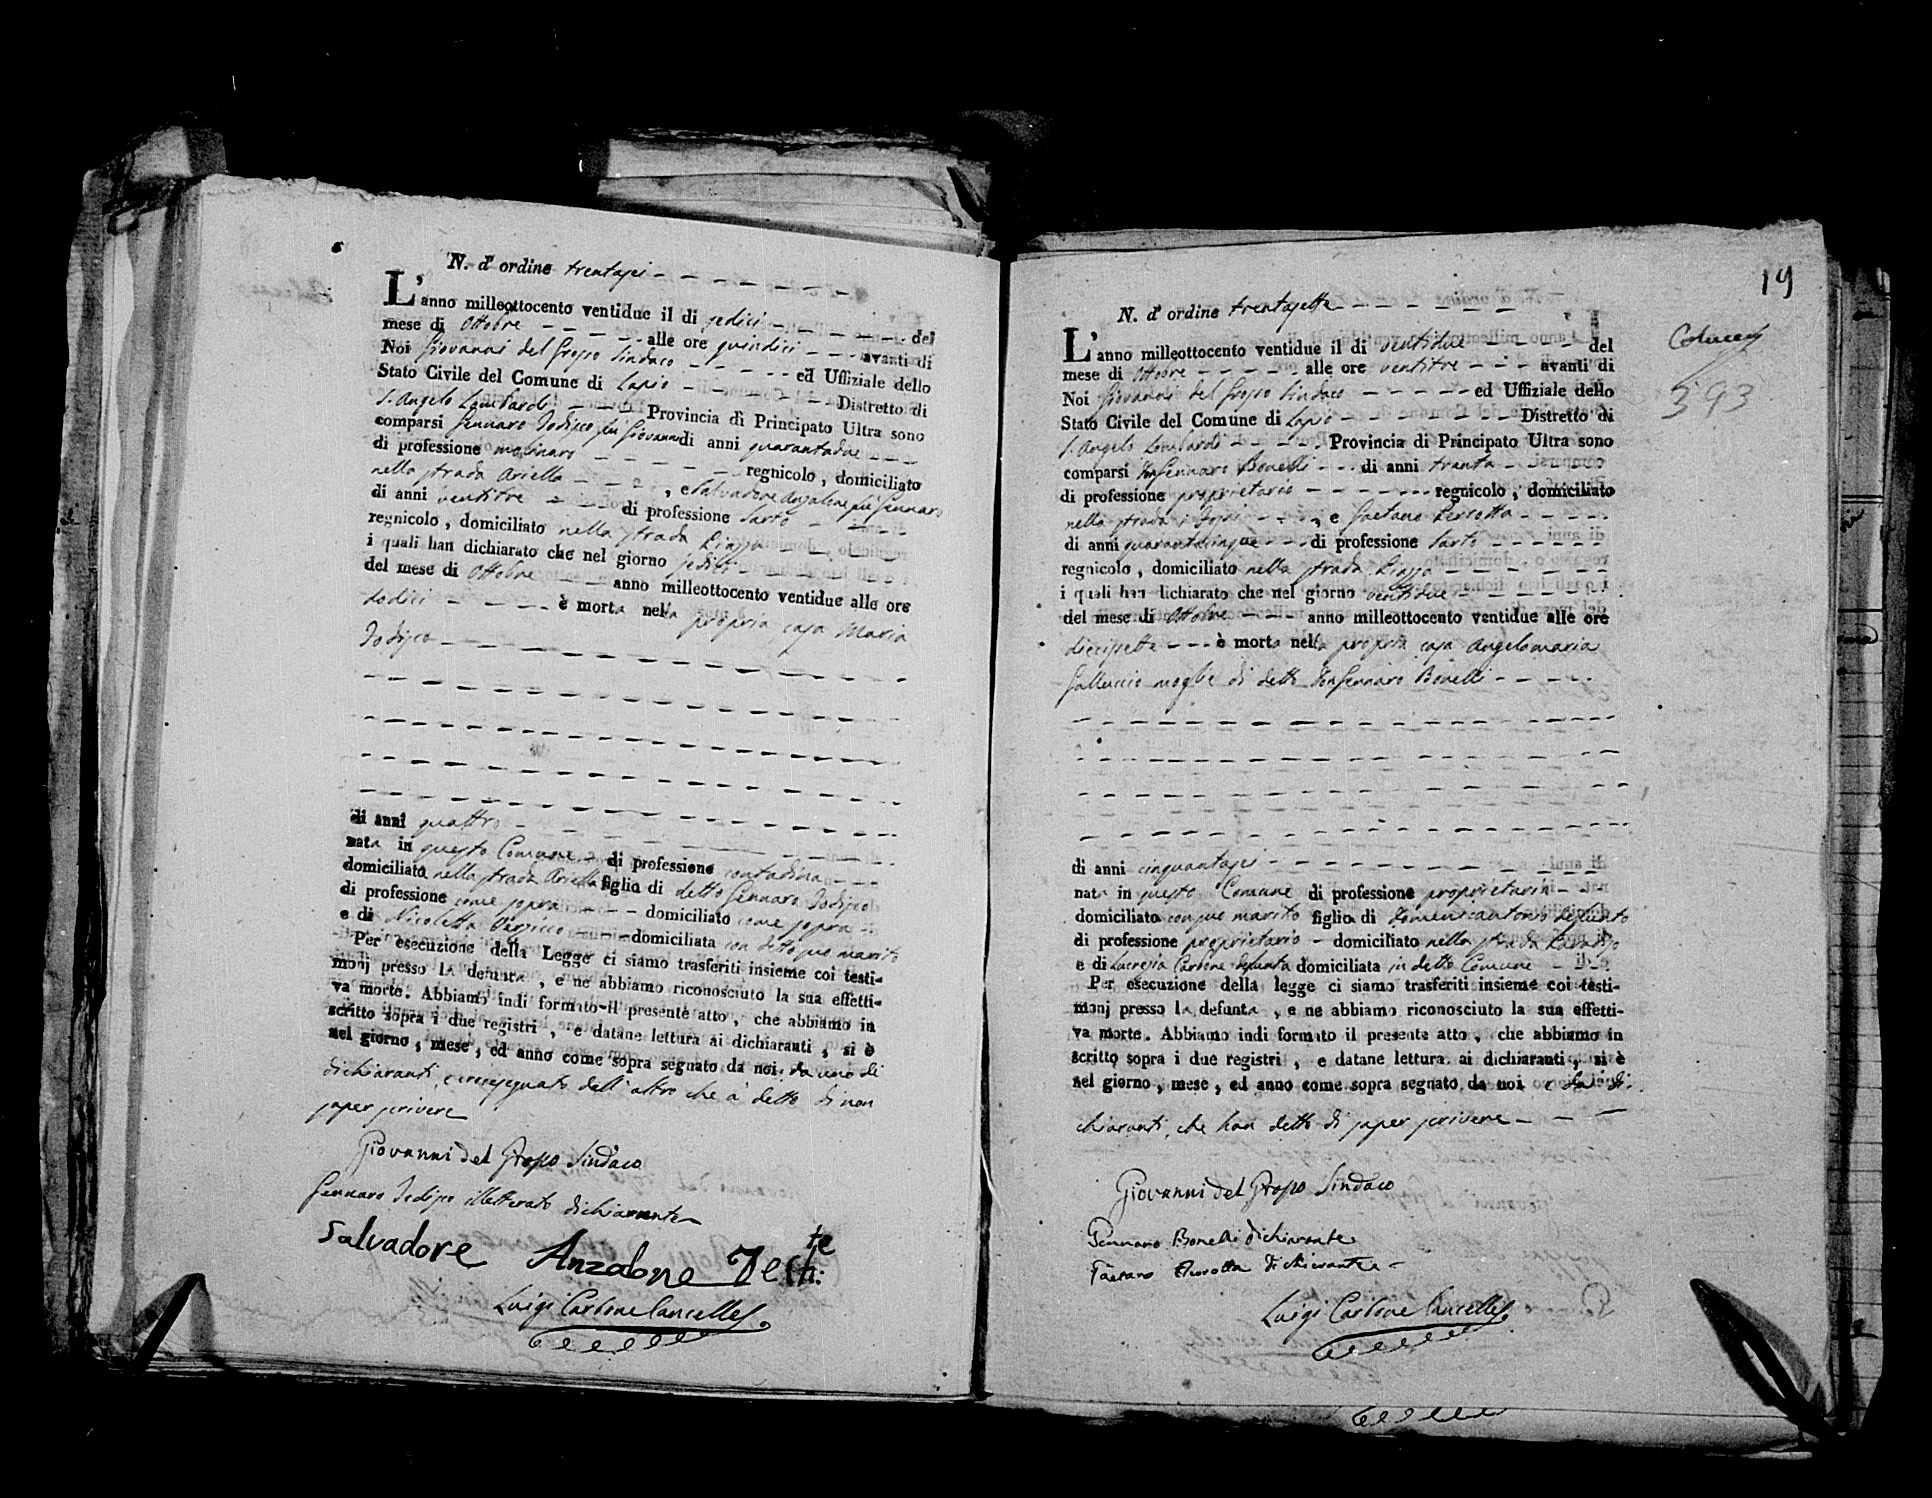 N. d'ordine trentasei
L'anno milleottocento ventidue il di sedici del
mese di Ottobre alle ore quindici avanti di
Noi Giovanni del Grosso Sindaco ed Uffiziale dello
Stato Civile del Comune di Lapio Distretto di
S. Angelo Lombardo Provincia di Principato Ultra sono
comparsi Gennaro Iodisco fu Giovanni di anni quarantadue
di professione molinaro regnicolo, domiciliato
nella strada Ariella, e Salvadore Anzalone fu Gennaro
di anni ventitre di professione Sarto
regnicolo, domiciliato nella strada Piazza
i quali han dichiarato che nel giorno sedici
del mese di Ottobre anno milleottocento ventidue alle ore
dodici è morta nella propria casa Maria
Iodisco
di anni quattro
nata in questo Comune di professione contadina
domiciliato nella strada Ariella figlia di detto Gennaro Iodisco
di professione come sopra domiciliato come sopra
e di Nicoletta domiciliata con detto suo marito
Per esecuzione della Legge ci siamo trasferiti insieme coi testi-
monj presso la defunta, e ne abbiamo riconosciuto la sua effetti-
va morte. Abbiamo indi formato il presente atto, che abbiamo in
scritto sopra i due registri, e datane lettura ai dichiaranti, si è
nel giorno, mese, ed anno come sopra segnato da noi da uno di
dichiaranti, e crocesegnato dall'altro che à detto di non
saper scrivere
Giovanni del Grosso Sindaco
Gennaro Iodisco illetterato dichiarante
Salvadore Anzalone
Luigi Carbone Cancelle
19
N. d'ordine trentasette
L'anno milleottocento ventidue il di ventidue del
mese di Ottobre alle ore ventitre avanti di
Noi Giovanni del Grosso Sindaco ed Uffiziale dello
Stato Civile del Comune di Lapio Distretto di
S. Angelo Lombardo Provincia di Principato Ultra sono
comparsi Don Gennaro Bonelli di anni trenta
di professione proprietario regnicolo, domiciliato
nella strada, e Gaetano Perrotta
di anni quarantacinque di professione Sarto
regnicolo, domiciliato nella strada Piazza
i quali han dichiarato che nel giorno ventidue
del mese di Ottobre anno milleottocento ventidue alle ore
diecisette è morta nella propria casa Angelamaria
Galluccio moglie di detto Don Gennaro Bonelli
di anni cinquantasei
nata in questo Comune di professione proprietaria
domiciliato con suo marito figlia di Domenicantonio defunto
di professione proprietario domiciliato nella strada
e di Lucrezia Carbone defunta domiciliata in detto Comune
Per esecuzione della legge ci siamo trasferiti insieme coi testi-
monj presso la defunta, e ne abbiamo riconosciuto la sua effetti-
va morte. Abbiamo indi formato il presente atto, che abbiamo in
scritto sopra i due registri, e datane lettura ai dichiaranti, si è
nel giorno, mese, ed anno come sopra segnato da noi e da di
chiaranti, che han detto di saper scrivere
Giovanni del Grosso Sindaco
Gennaro Bonelli dichiarante
Gaetano Perrotta dichiarante
Luigi Carbone Cancelle
393